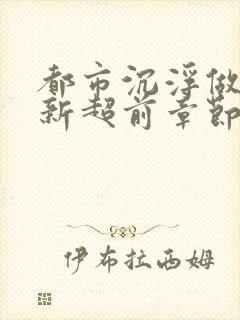 都市沉浮做
新超前章節
伊布拉西姆